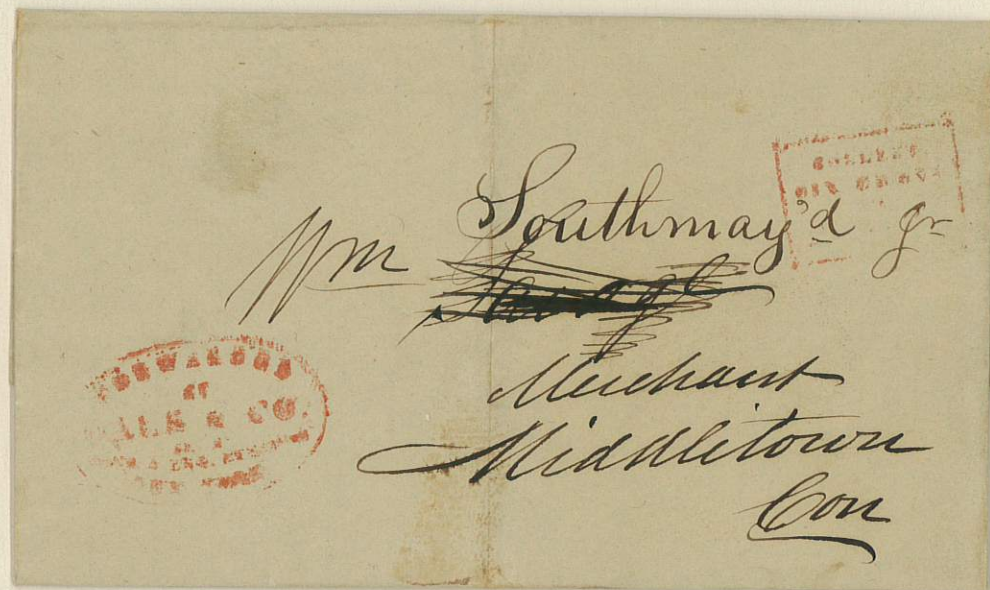 COLLECT
SIX CENTS
Southmay'd Jr
Wm
Merchant
Middletown
Con
FORWARDED
BY
HALE & CO.